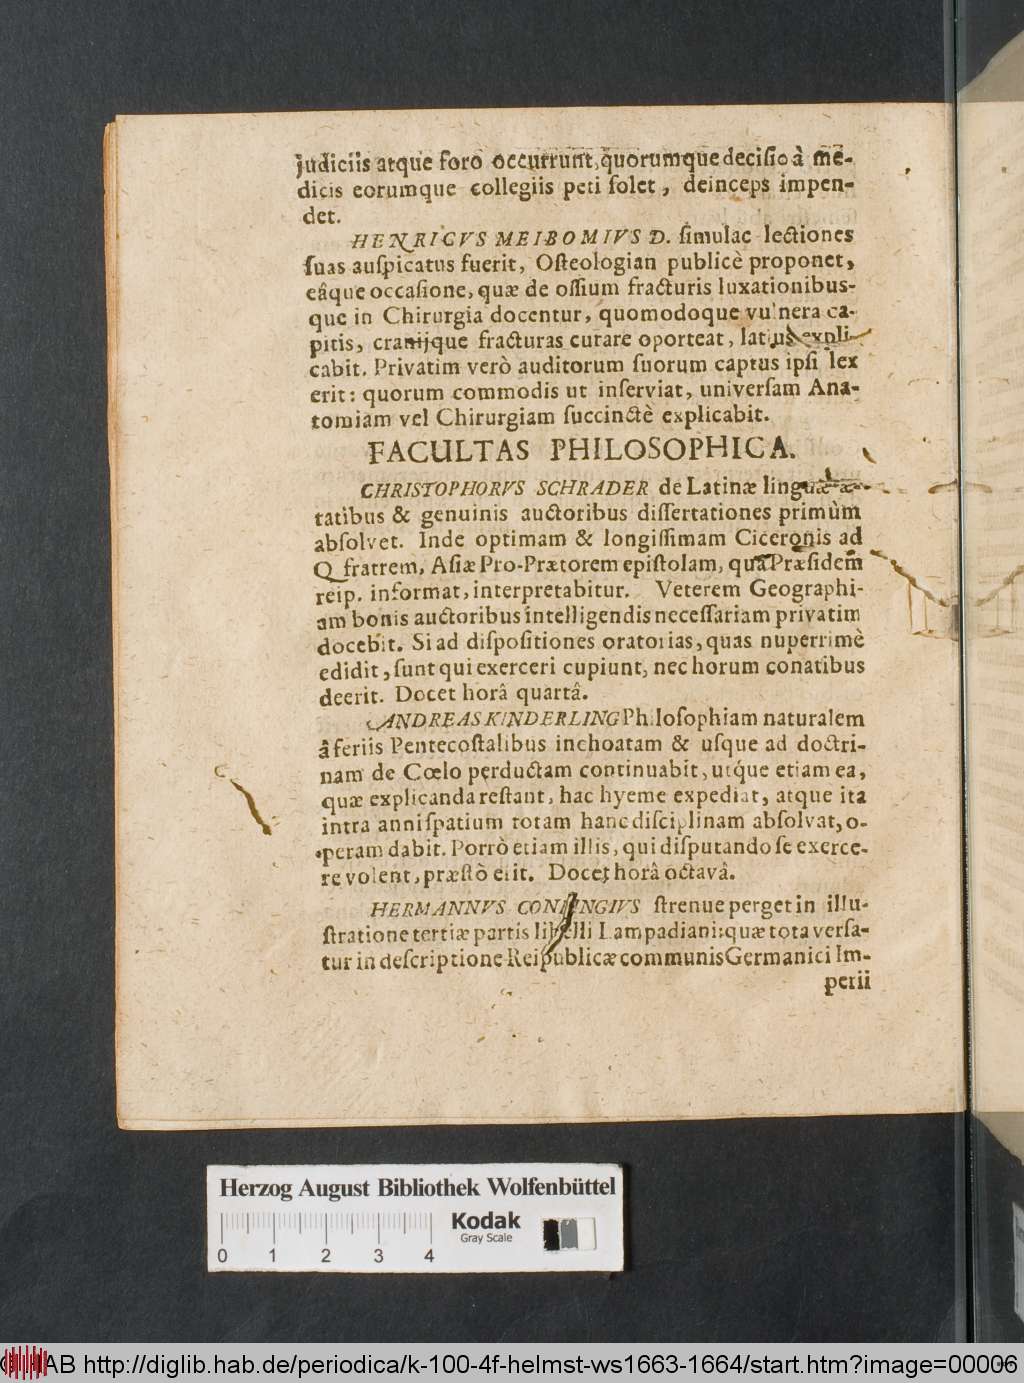 judiciis atque foro occurrunt, quorumque decisio à me-
dicis eorumque collegiis peti solet, deinceps impen-
det.
HENRICVS MEIBOMIVS D. simulac lectiones
suas auspicatus fuerit, Osteologian publicè proponet,
eâque occasione, quæ de ossium fracturis luxationibus-
que in Chirurgia docentur, quomodoque vulnera ca-
pitis, cranijque fracturas curare oporteat, latius expli-
cabit. Privatim verò auditorum suorum captus ipsi lex
erit: quorum commodis ut inserviat, universam Ana-
tomiam vel Chirurgiam succinctè explicabit.
FACULTAS PHILOSOPHICA.
CHRISTOPHORVS SCHRADER de Latinæ linguæ æ-
tatibus & genuinis auctoribus dissertationes primùm
absolvet. Inde optimam & longissimam Ciceronis ad
Q. fratrem, Asiæ Pro-Prætorem epistolam, quâ Præsidem
reip. informat, interpretabitur. Veterem Geographi-
am bonis auctoribus intelligendis necessariam privatim
docebit. Si ad dispositiones oratorias, quas nuperrimè
edidit, sunt qui exerceri cupiunt, nec horum conatibus
deerit. Docet horâ quartâ.
ANDREAS KINDERLING Philosophiam naturalem
â feriis Pentecostalibus inchoatam & usque ad doctri-
nam de Cœlo perductam continuabit, utque etiam ea,
quæ explicanda restant, hac hyeme expediat, atque ita
intra anni spatium totam hanc disciplinam absolvat, o-
peram dabit. Porrò etiam illis, qui disputando se exerce-
re volent, præstò erit. Docet horâ octavâ.
HERMANNVS CONRINGIVS strenue perget in illu-
stratione tertiæ partis libelli Lampadiani: quæ tota versa-
tur in descriptione Reipublicæ communis Germanici Im-
perii
Herzog August Bibliothek Wolfenbüttel
0 1 2 3 4
Kodak
Gray Scale
© HAB http://diglib.hab.de/periodica/k-100-4f-helmst-ws1663-1664/start.htm?image=00006